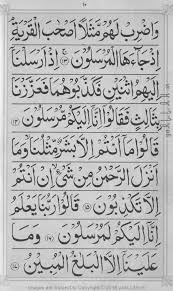 وَاضْرِبْ لَهُمْ مَّثَلًا أَصْحٰبَ الْقَرْيَةِ
إِذْ جَآءَهَا الْمُرْسَلُونَ ﴿١٣﴾ إِذْ أَرْسَلْنَآ
إِلَيْهِمُ اثْنَيْنِ فَكَذَّبُوهُمَا فَعَزَّزْنَا
بِثَالِثٍ فَقَالُوٓا إِنَّآ إِلَيْكُمْ مُّرْسَلُونَ ﴿١٤﴾
قَالُوا مَآ أَنْتُمْ إِلَّا بَشَرٌ مِّثْلُنَا وَمَآ
أَنْزَلَ الرَّحْمٰنُ مِنْ شَيْءٍ إِنْ أَنْتُمْ
إِلَّا تَكْذِبُونَ ﴿١٥﴾ قَالُوا رَبُّنَا يَعْلَمُ
إِنَّآ إِلَيْكُمْ لَمُرْسَلُونَ ﴿١٦﴾ وَمَا
عَلَيْنَآ إِلَّا الْبَلٰغُ الْمُبِينُ ﴿١٧﴾